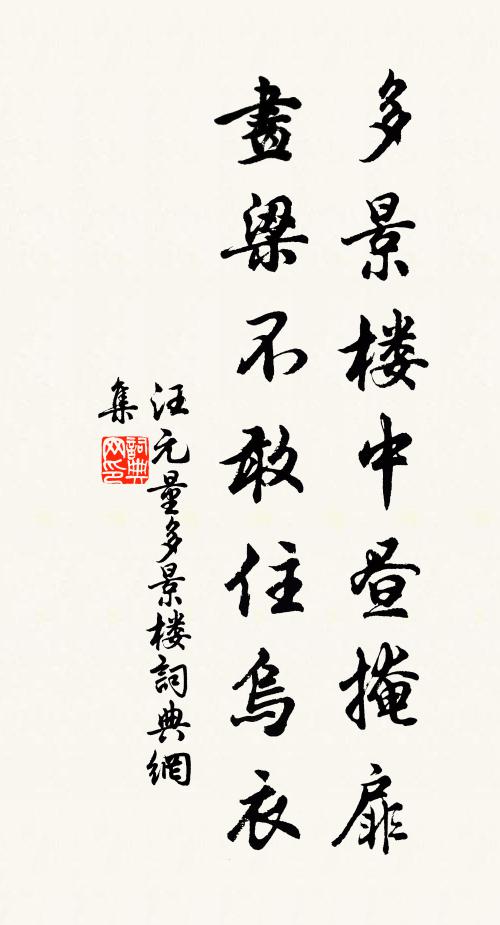 多景楼中昼掩扉
畫梁不敢住烏衣
汪元量多景楼詞典網
集
詞典网印